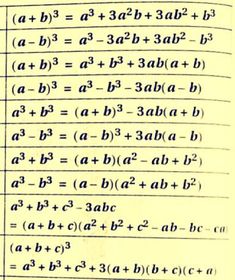 (a + b)³ = a³ + 3a²b + 3ab² + b³
(a − b)³ = a³ − 3a²b + 3ab² − b³
(a + b)³ = a³ + b³ + 3ab(a + b)
(a − b)³ = a³ − b³ − 3ab(a − b)
a³ + b³ = (a + b)³ − 3ab(a + b)
a³ − b³ = (a − b)³ + 3ab(a − b)
a³ + b³ = (a + b)(a² − ab + b²)
a³ − b³ = (a − b)(a² + ab + b²)
a³ + b³ + c³ − 3abc
= (a + b + c)(a² + b² + c² − ab − bc − ca)
(a + b + c)³
= a³ + b³ + c³ + 3(a + b)(b + c)(c + a)